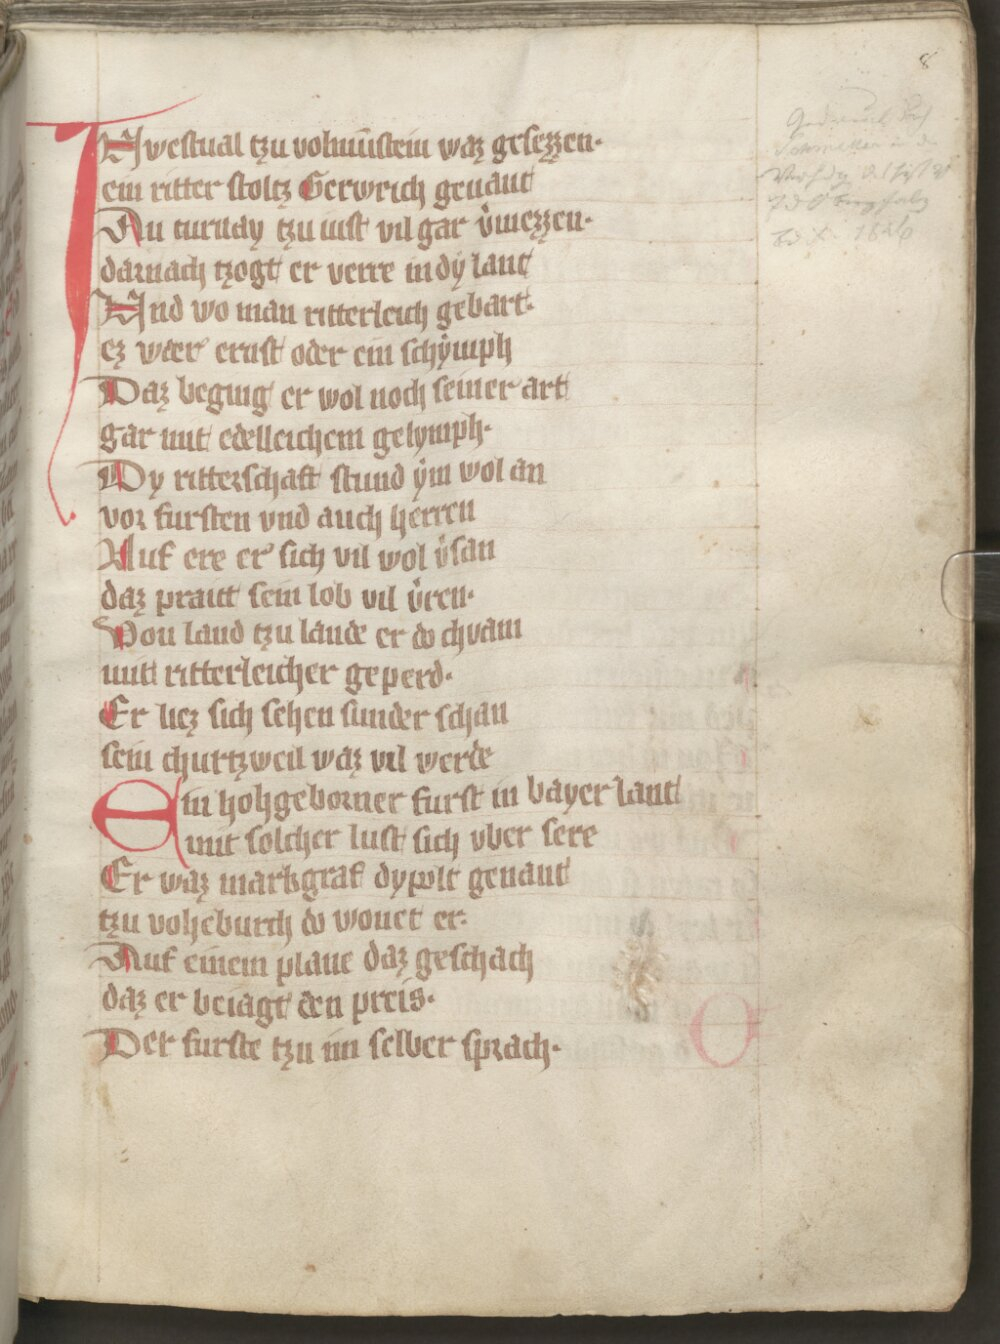 8
IN westual tzu volmunstein waz gesezzen·
ein ritter stoltz Gerwrich genant
An turnay tzu iust vil gar v̓mezzen·
darnach tzogt er verre in dy lant
Vnd wo man ritterleich gebart·
ez wær ernst oder ein schÿmph
Daz beging er wol noch seiner art
gar mit edelleichem gelymph·
Dy ritterschaft stund ẏm wol an
vor fursten vnd auch herren
Auf ere er sich vil wol v̓san
daz praitt sein lob vil v̓ren·
Von land tzu lande er do chvam
mit ritterleicher geperd·
Er liez sich sehen sunder schan
sein churtzweil waz vil werde
Ein hohgeborner furst in bayer lant
mit solcher lust sich vber sere
Er waz markgraf dypolt genant
tzu voheburch do wonet er·
Auf einem plane daz geschach
daz er beiagt den preis·
Der furste tzu im selber sprach·